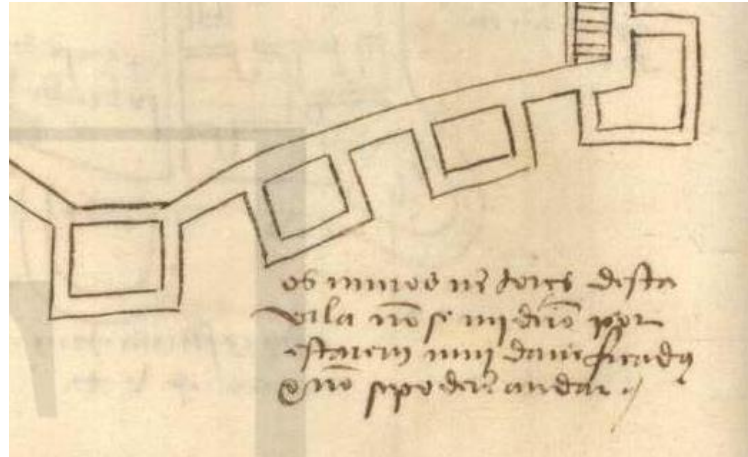 os muros nẽ torẽs desta
vila nõ se midirõ por
estarem mui danificados
& nõ se poderẽ andar